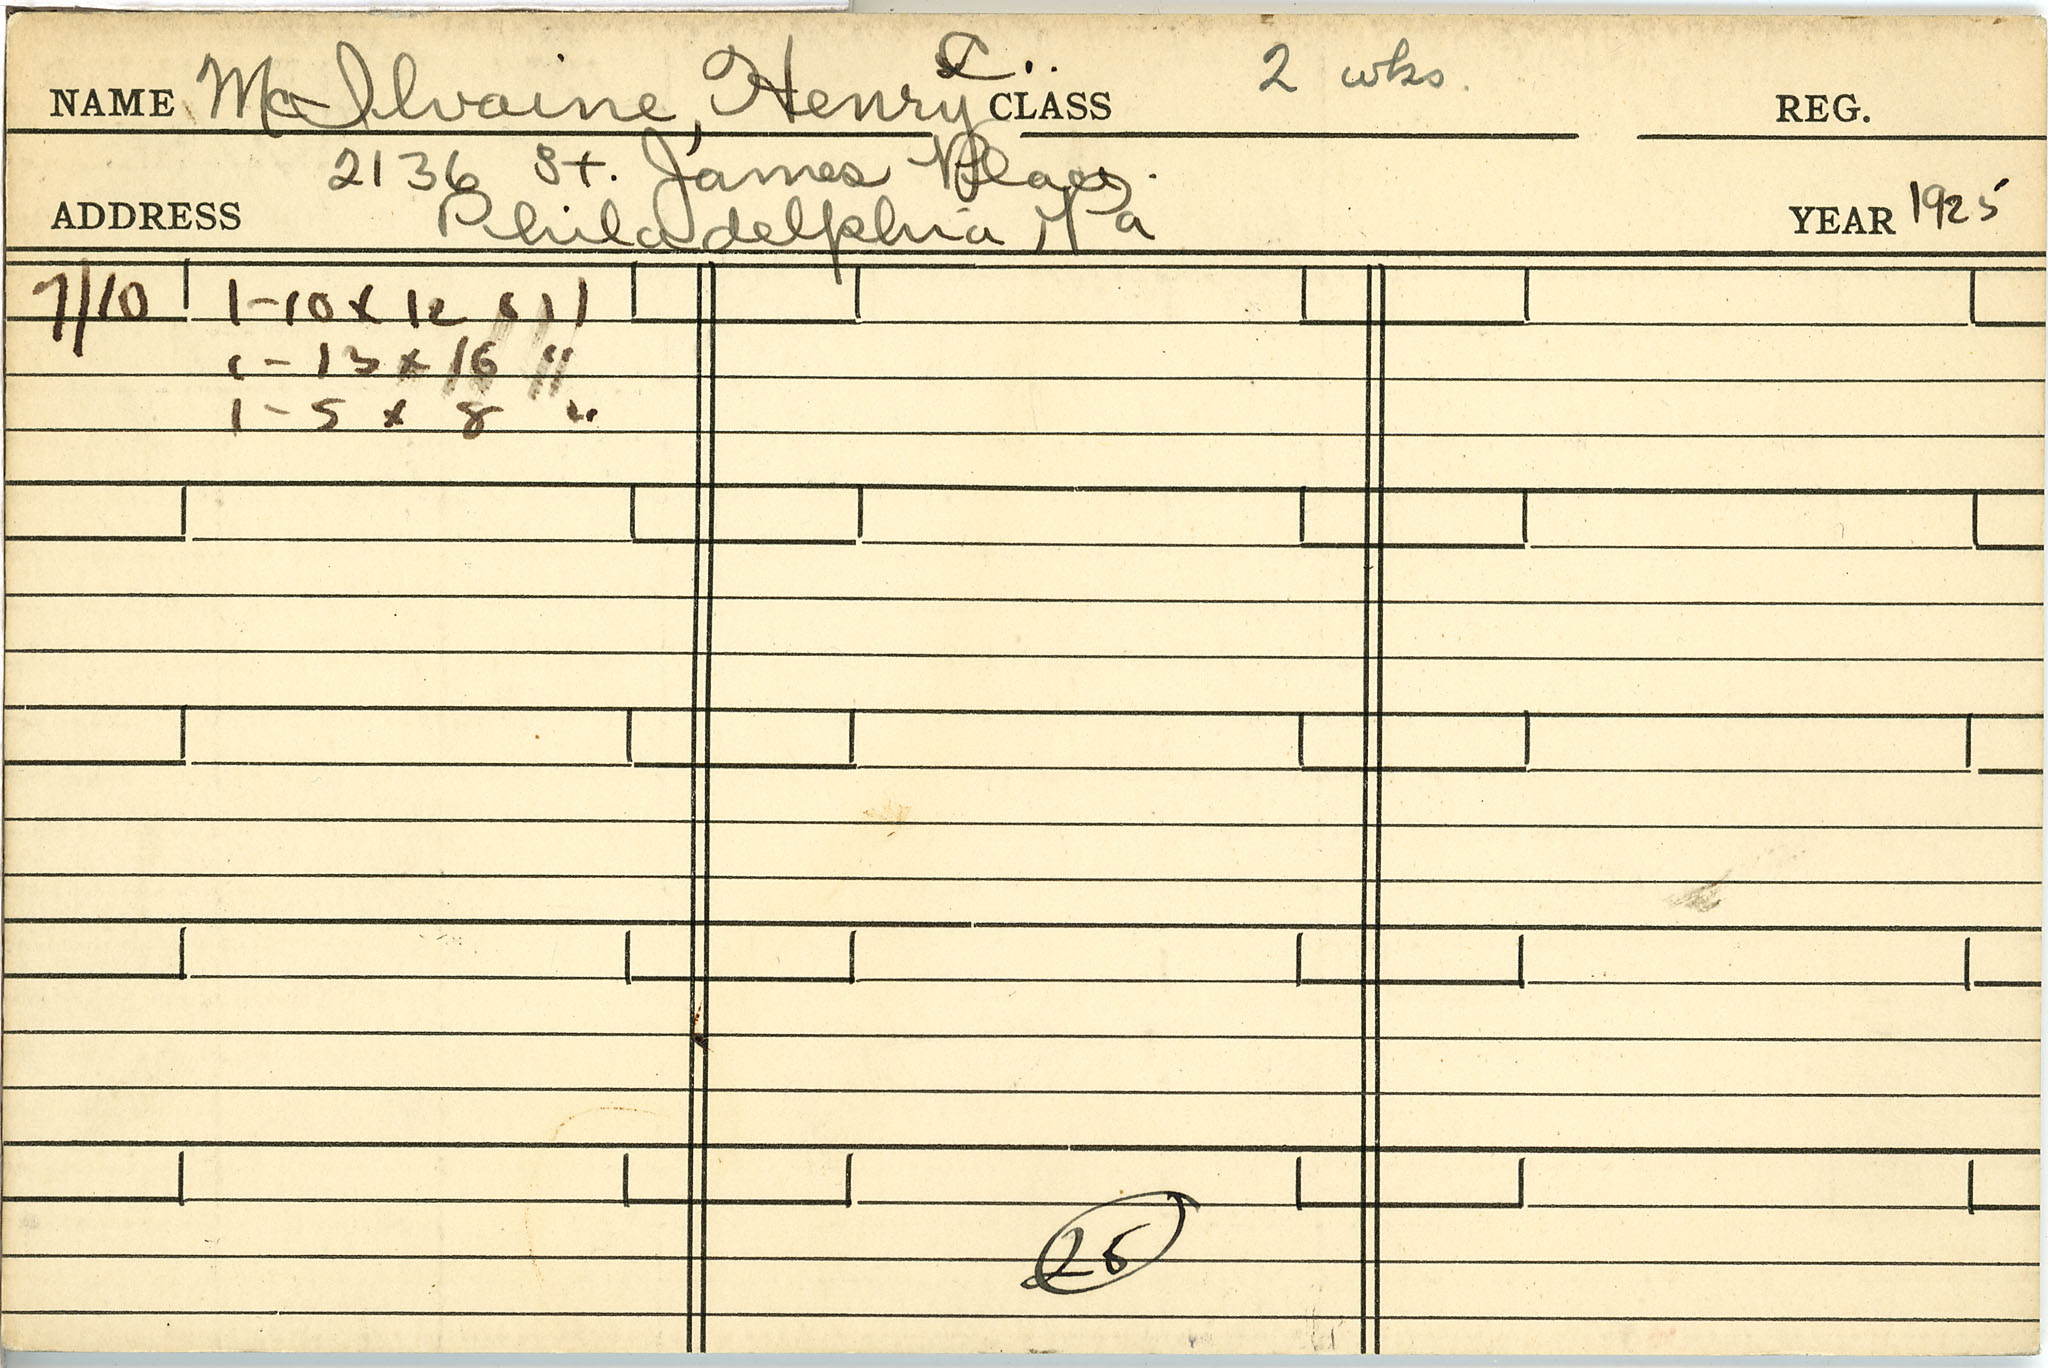 NAME McIlvaine, Henry C. CLASS 2 wks. REG.
2136 St. James Place.
ADDRESS Philadelphia, Pa YEAR 1925
7/10 1-10 x 12
1-13 x 16 "
1-5 x 8 "
25